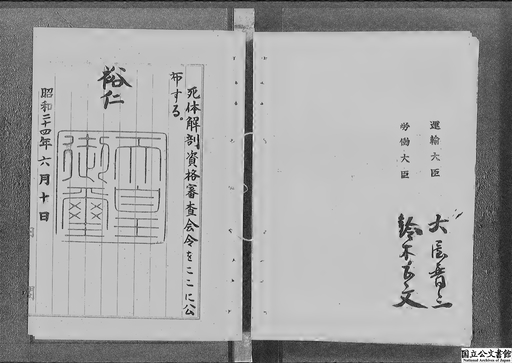 運輸大臣 大屋晋三
労働大臣 鈴木正文
死体解剖資格審査会令をここに公
布する。
裕仁
天皇
御璽
昭和二十四年六月十日
国立公文書館
National Archives of Japan